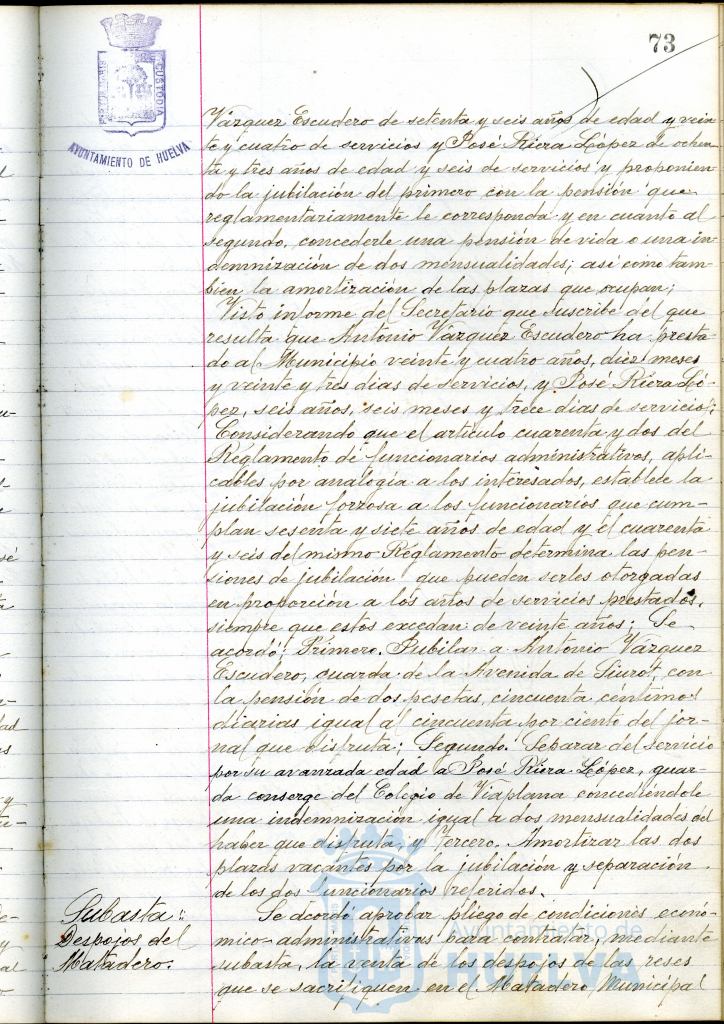 73
CUSTODIA
AYUNTAMIENTO DE HUELVA
Vázquez Escudero de setenta y seis años de edad y vein-
te y cuatro de servicios y José Riera López de ochen-
ta y tres años de edad y seis de servicios y proponien-
do la jubilación del primero con la pensión que
reglamentariamente le corresponda y en cuanto al
segundo, concederle una pensión de vida o una in-
demnización de dos mensualidades; así como tam-
bien la amortización de las plazas que ocupan;
Visto informe del Secretario que suscribe del que
resulta que Antonio Vázquez Escudero ha presta-
do al Municipio veinte y cuatro años, diez meses
y veinte y tres dias de servicios, y José Riera Ló-
pez, seis años, seis meses y trece dias de servicio;
Considerando que el artículo cuarenta y dos del
Reglamento de funcionarios administrativos, apli-
cables por analogía a los interesados, establece la
jubilación forzosa a los funcionarios que cum-
plan sesenta y siete años de edad y el cuarenta
y seis del mismo Reglamento determina las pen-
siones de jubilación que pueden serles otorgadas
en proporción a los años de servicios prestados,
siempre que estos excedan de veinte años; Se
acordó: Primero. Jubilar a Antonio Vázquez
Escudero, guarda de la Avenida de Siurot, con
la pensión de dos pesetas, cincuenta céntimos
diarias igual al cincuenta por ciento del jor-
nal que disfruta; Segundo. Separar del servicio
por su avanzada edad a José Riera López, guar-
da conserge del Colegio de Viaplana concediéndole
una indemnización igual a dos mensualidades del
haber que disfruta; y Tercero. Amortizar las dos
plazas vacantes por la jubilación y separación
de los dos funcionarios referidos.
Subasta:
Despojos del
Matadero.
Se acordó aprobar pliego de condiciones econó-
mico-administrativas para contratar, mediante
subasta, la venta de los despojos de las reses
que se sacrifiquen en el Matadero Municipal
Ayuntamiento de
HUELVA